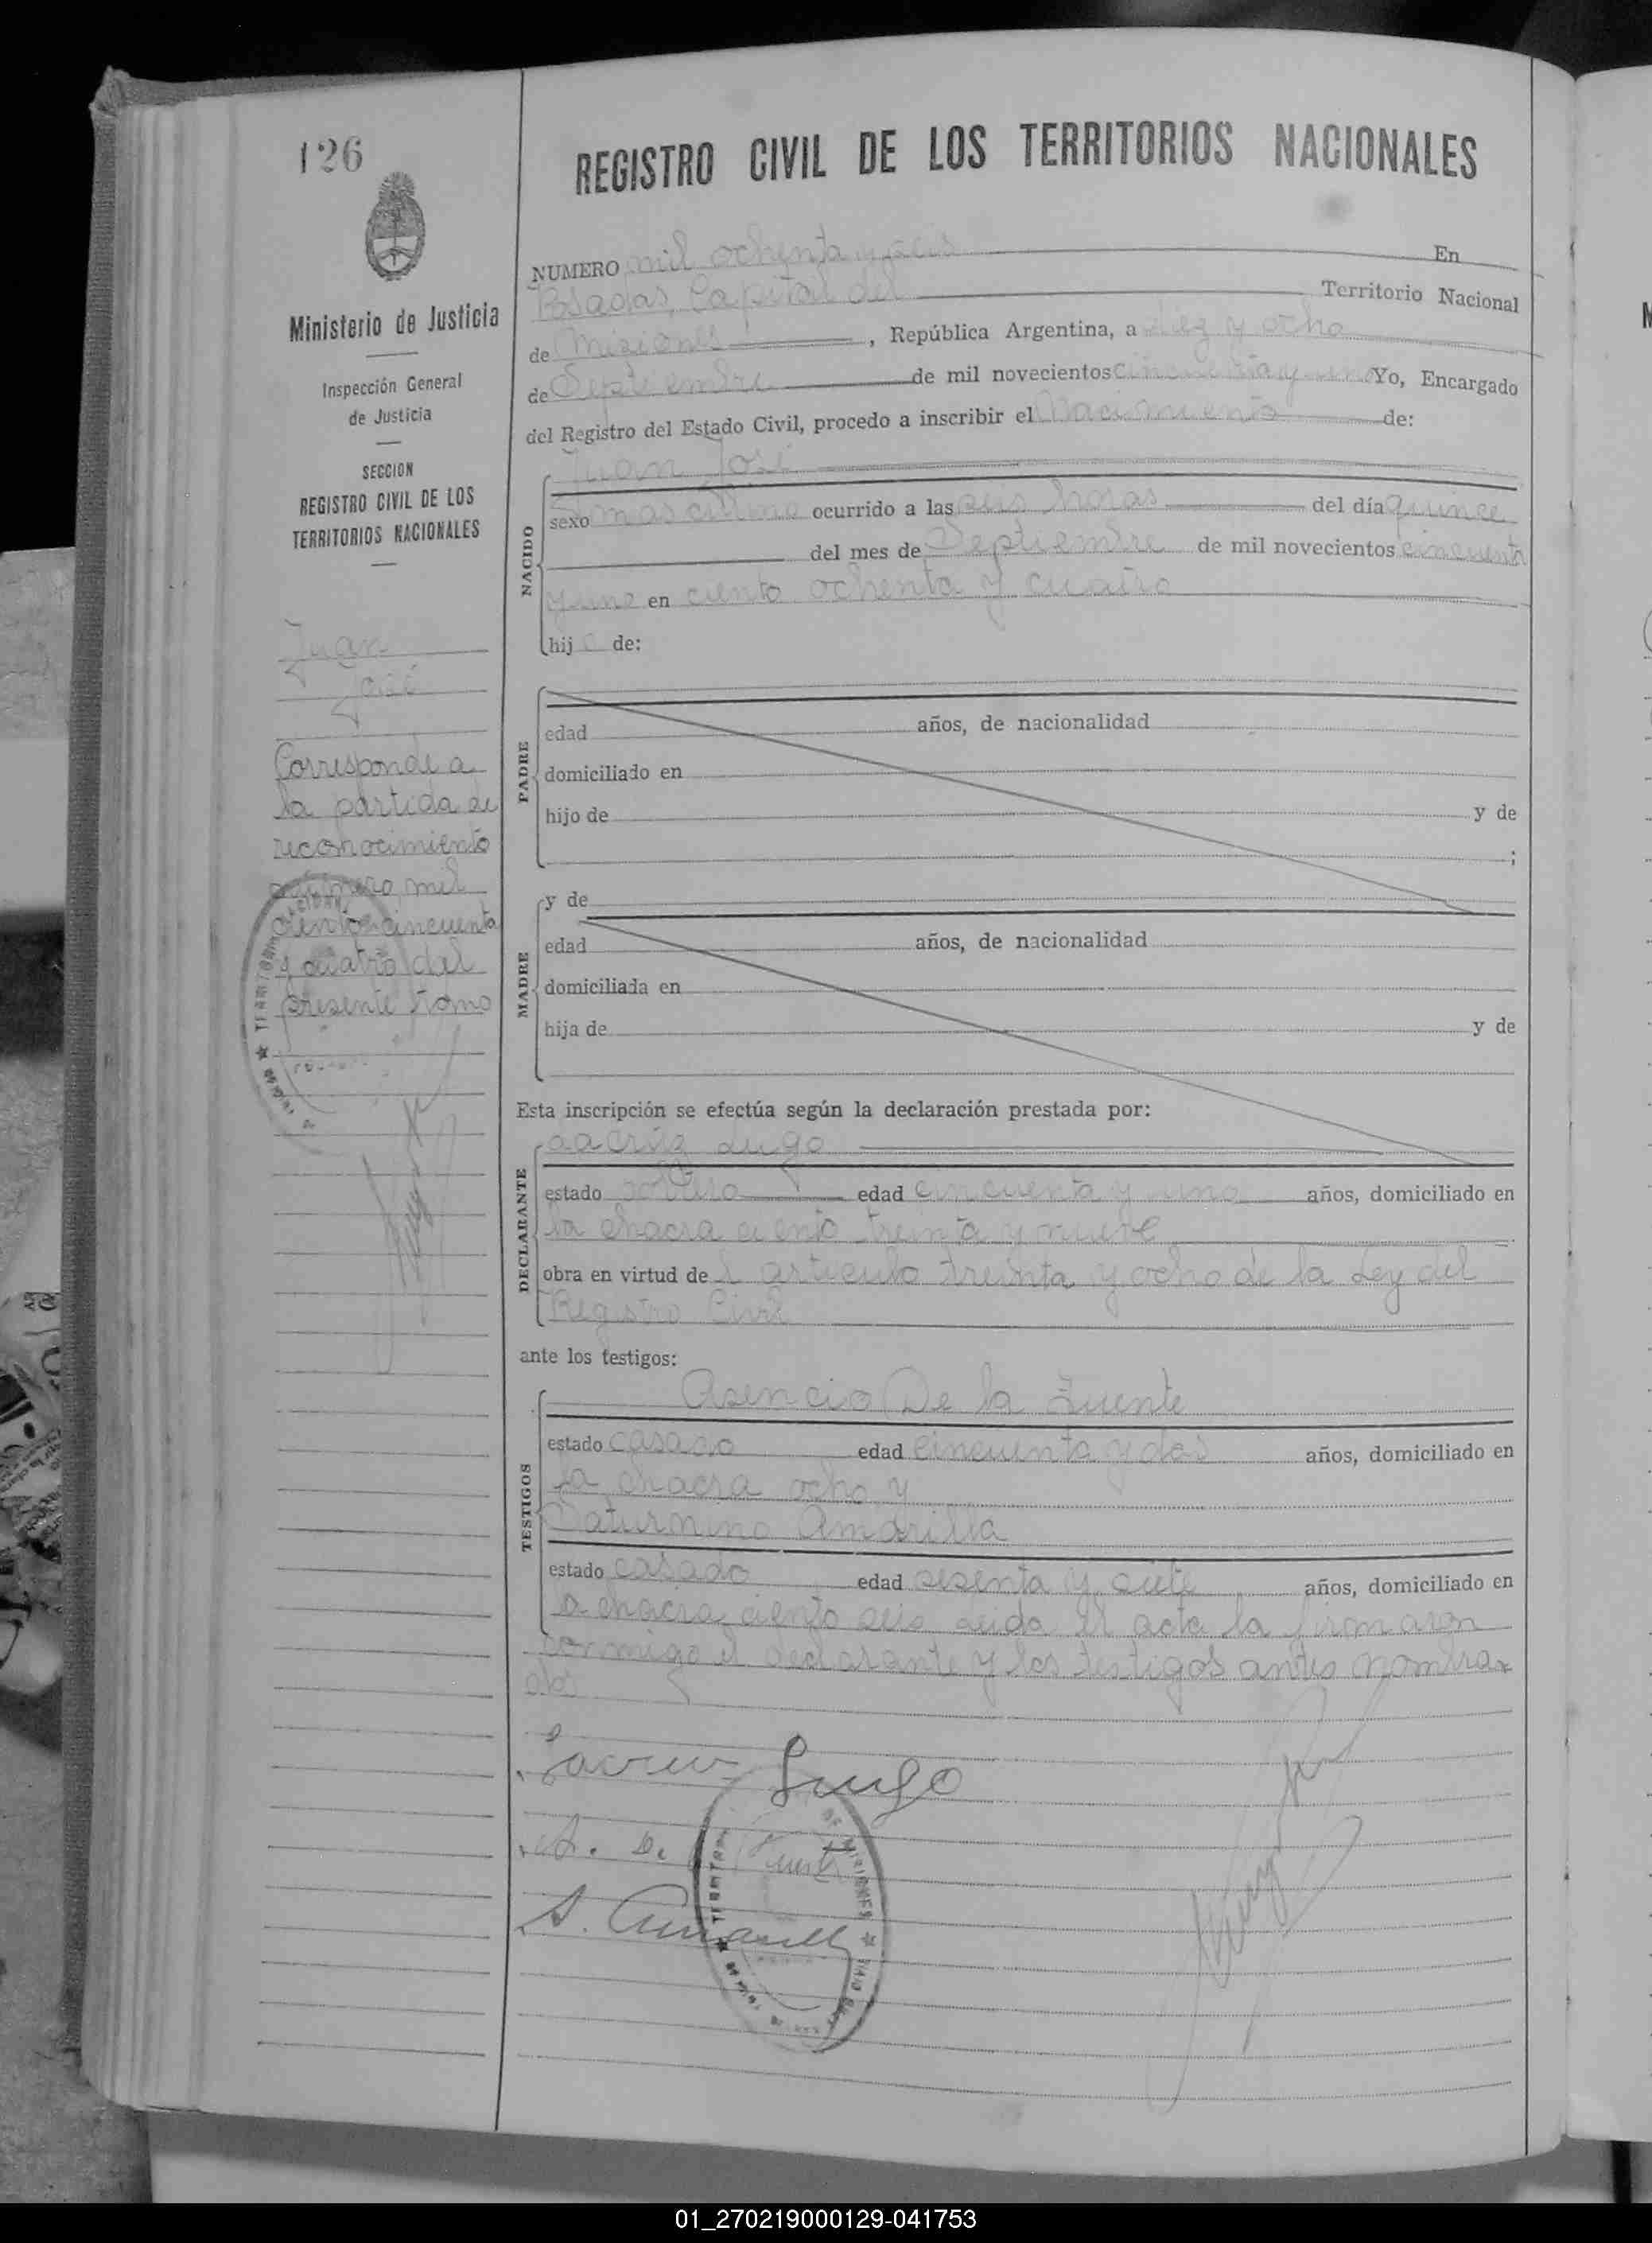 126
Ministerio de Justicia
Inspección General
de Justicia
SECCION
REGISTRO CIVIL DE LOS
TERRITORIOS NACIONALES
Juan
José
Corresponde a
la partida de
reconocimiento
número mil
ciento cincuenta
y cuatro del
presente tomo
REGISTRO CIVIL DE LOS TERRITORIOS NACIONALES
NUMERO mil ochenta y seis En
Posadas, Capital del Territorio Nacional
de Misiones, República Argentina, a diez y ocho
de Septiembre de mil novecientos cincuenta y uno Yo, Encargado
del Registro del Estado Civil, procedo a inscribir el Nacimiento de:
Juan José
NACIDO
sexo masculino ocurrido a las seis horas del día quince
del mes de Septiembre de mil novecientos cincuenta
y uno en ciento ochenta y cuatro
hijo de:
PADRE
edad años, de nacionalidad
domiciliado en
hijo de y de
;
MADRE
y de
edad años, de nacionalidad
domiciliada en
hija de y de
Esta inscripción se efectúa según la declaración prestada por:
DECLARANTE
Lugo
estado soltero edad cincuenta y uno años, domiciliado en
la chacra ciento treinta y nueve
obra en virtud del articulo treinta y ocho de la Ley del
Registro Civil
ante los testigos:
TESTIGOS
Asencio De la Fuente
estado casado edad cincuenta y dos años, domiciliado en
la chacra ocho y
Saturnino Amarilla
estado casado edad sesenta y siete años, domiciliado en
la chacra ciento seis Leida el acta la firmaron
conmigo el declarante y los testigos antes nombra
dos
Lugo
A. De Fuente
S. Amarilla
DE MISIONES
01_270219000129-041753